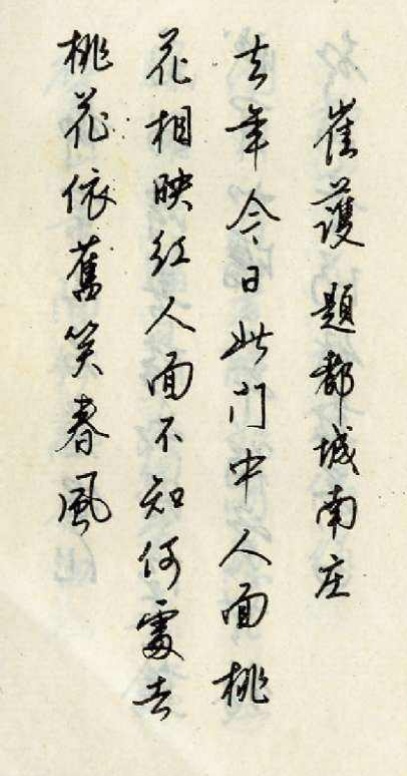 崔護題都城南庄
去年今日此门中人面桃
花相映红人面不知何處去
桃花依舊笑春風